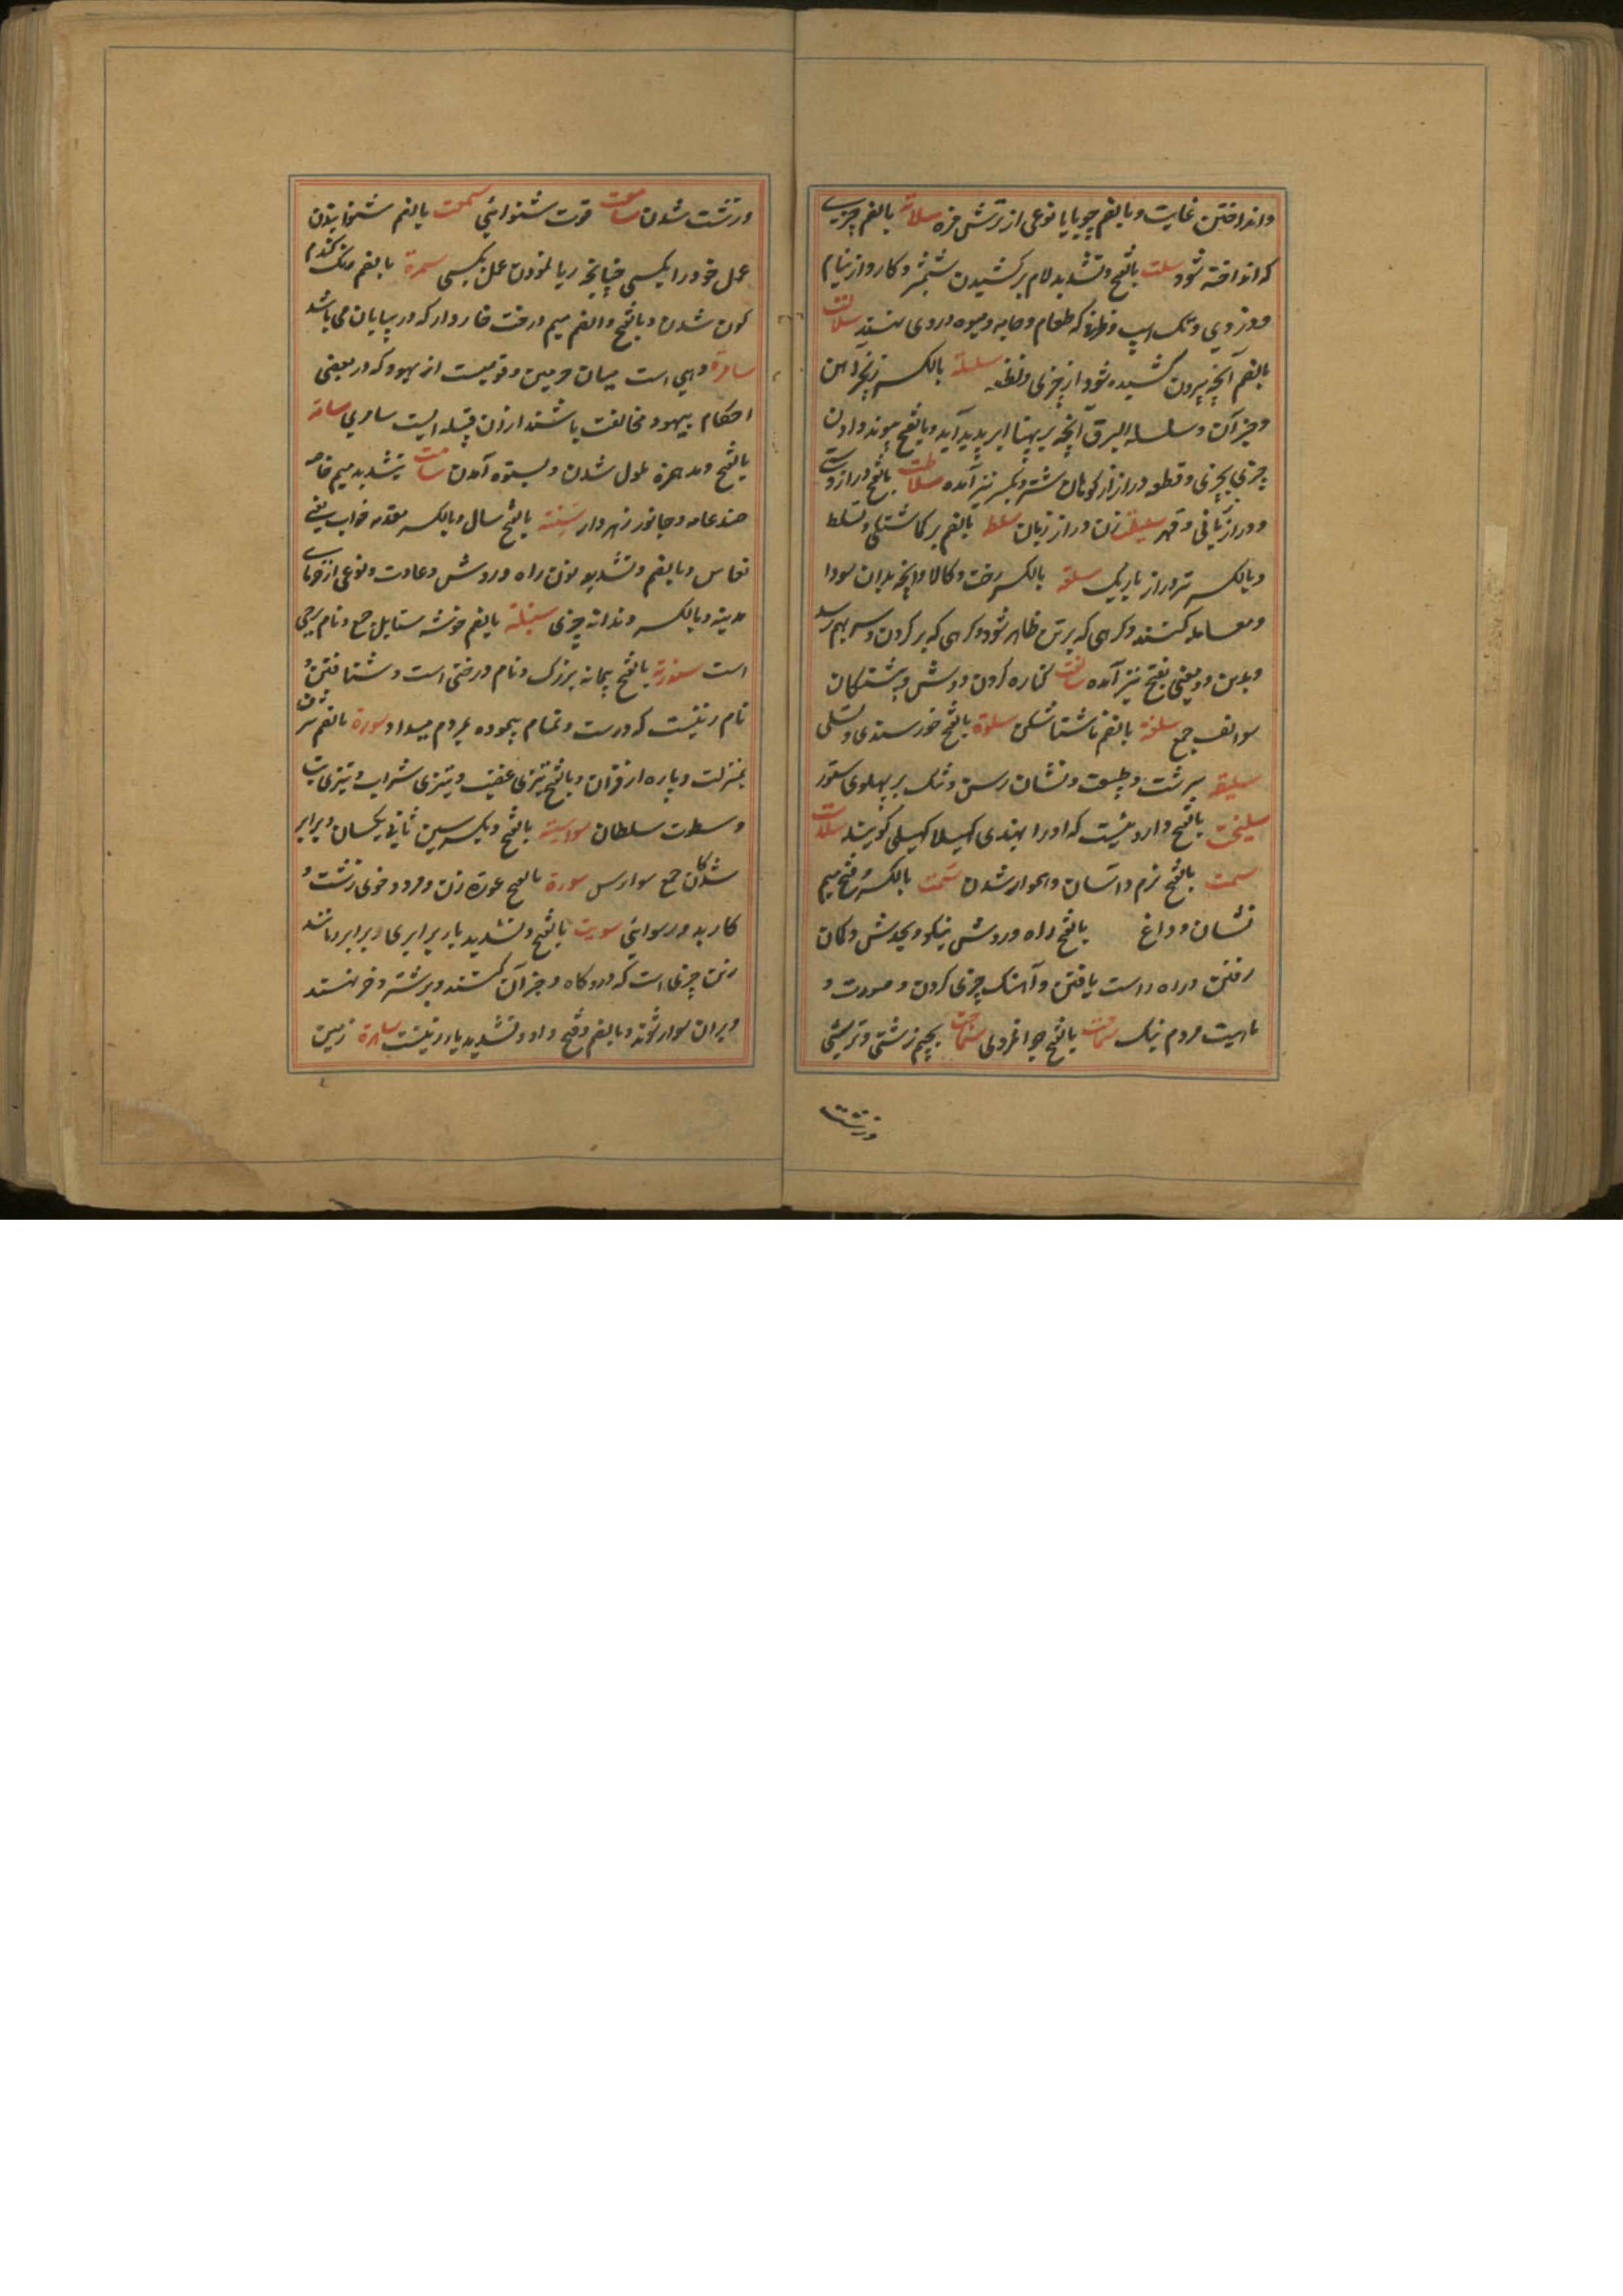 وانداختن غایت و بالضم چوپایا نوعی از ترشش مزه سلاته بالضم چیزی
که انداخته شود سلت بالفتح وتشدید لام برکشیدن شمشیر و کارد از نیام
ودزدی وتک اسپ وظرفی که طعام وجامه ومیوه دروی نهند سلالت
بالضم آنچه بیرون کشیده شود از چیزی ونطفه سلسلة بالکسر زنجیر آهن
وجز آن وسلسلة البرق آنچه بر پهنا ابر پدید آید وبالفتح پیوند دادن
چیزی بچیزی وقطعه دراز از کوهان شتر وبکسر نیز آمده سلاطت بالفتح دراز دستی
ودراز زبانی وقهر سلیطة زن دراز زبان سلطة بالضم بر کماشتکی وتسلط
وبالکسر تیر دراز باریک سلعة بالکسر رخت وکالا وآنچه بدان سودا
ومعامله کنند وکرهی که بر تن ظاهر شود وکرهی که بر کردن وسر بهم رسد
وبدین دو معنی بفتح نیز آمده سالفت کناره کردن ودوش وپیشینکان
سوالف جمع سلفة بالضم ناشتاشکن سلوة بالفتح خورسندی وتسلی
سلیقة سرشت وطبیعت ونشان رسن وتنک بر پهلوی ستور
سلیخت بالفتح داروئیست که اورا بهندی کهیلا کهیلی کویند سلاست
سمت بالفتح نرم وآسان وهموار شدن سمت بالکسر وفتح میم
نشان وداغ بالفتح راه وروش نیکو وبحدس وکمان
رفتن ودر راه راست یافتن وآهنک چیزی کردن وصورت و
ماهیت مردم نیک سماحت بالفتح جوانمردی سماجت بجیم زشتی وترشی
وزشت
وزشت شدن سامعت قوت شنوائی سمعت بالضم شنوایندن
عمل خود را بکسی چنانچه ریا نمودن عمل بکسی سمرة بالضم رنک کندم
کون شدن وبالفتح والضم میم درخت خاردار که در بیابان می باشد
سامرة دهی است میان حرمین وقومیست از یهود که در بعضی
احکام بیهود مخالفت باشند ازان قبیله ایست سامری سامة
بالفتح ومد همزه ملول شدن وبستوه آمدن سامت بتشدید میم خاصه
ضد عامه وجانور زهردار سنة بالفتح سال وبالکسر مقدمه خواب یعنی
نعاس وبالضم وتشدید نون راه وروش وعادت ونوعی از خرمای
مدینه وبالکسر دندانه چیزی سنبلة بالضم خوشه سنابل جمع ونام برجی
است سندرة بالفتح پیمانه بزرک ونام درختی است وشتافتن و
نام زنیست که درست وتمام پیموده بمردم میداد سورة بالضم شرف
ومنزلت وپاره از قران وبالفتح تیزی غضب وتیزی شراب وتیزی تب
وسطوت سلطان سواسیة بالفتح وبکسر سین ثانی یکسان وبرابر
شدکان جمع سوارس سورة بالفتح عورة زن ومرد وخوی زشت و
کار بد ورسوائی سویت بالفتح وتشدید یا برابری وبرابر ومانند
زین چیزی است که درو کاه وجز آن کنند وبر شتر وخر نهند
وبران سوار شوند وبالضم وفتح واو وتشدید یا زنیست ساهرة زمین